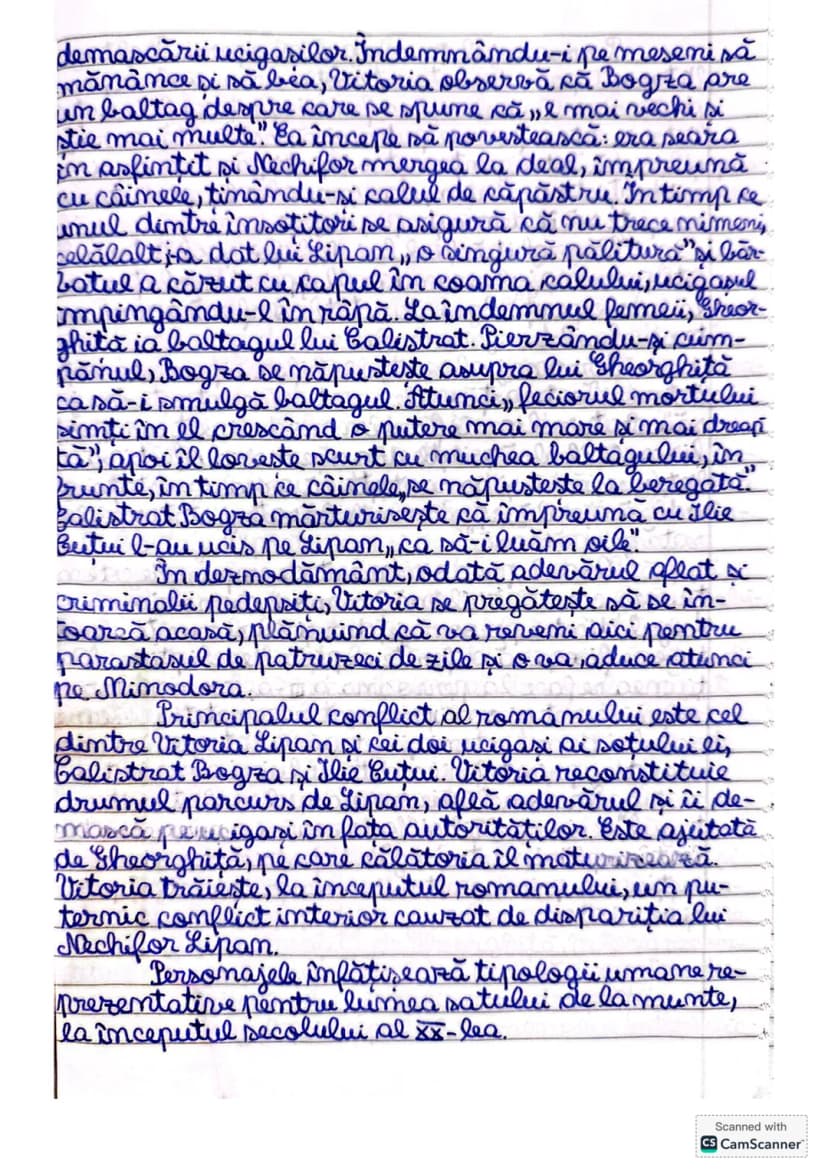 demascării ucigașilor. Îndemnându-i pe meseni să
mănânce și să bea, Vitoria observă că Bogza are
un baltag despre care se spune că „e mai vechi și
știe mai multe". Ea începe să povestească: era seara
în asfințit și Nechifor mergea la deal, împreună
cu câinele, ținându-și calul de căpăstru. În timp ce
unul dintre însoțitori se asigură că nu trece nimeni,
celălalt i-a dat lui Lipan „o singură pălitură" și băr-
batul a căzut cu capul în coama calului, ucigașul
împingându-l în râpă. La îndemnul femeii, Gheor-
ghiță ia baltagul lui Calistrat. Pierzându-și cum-
pănul, Bogza se năpustește asupra lui Gheorghiță
ca să-i smulgă baltagul. Atunci „feciorul mortului
simți în el crescând o putere mai mare și mai dreap
tă", apoi îl lovește scurt cu muchea baltagului, în
frunte, în timp ce câinele „se năpustește la beregată."
Calistrat Bogza mărturisește că împreună cu Ilie
Cuțui l-au ucis pe Lipan „ca să-i luăm oile".
În deznodământ, odată adevărul aflat și
criminalii pedepsiți, Vitoria se pregătește să se în-
toarcă acasă, plănuind că va reveni aici pentru
parastasul de patruzeci de zile și o va aduce atunci
pe Minodora.
Principalul conflict al românului este cel
dintre Vitoria Lipan și cei doi ucigași ai soțului ei,
Calistrat Bogza și Ilie Cuțui. Vitoria reconstituie
drumul parcurs de Lipan, află adevărul și îi de-
mască pe ucigași în fața autorităților. Este ajutată
de Gheorghiță, pe care călătoria îl maturizează.
Vitoria trăiește, la începutul romanului, un pu-
ternic conflict interior cauzat de dispariția lui
Nechifor Lipan.
Personajele înfățișează tipologii umane re-
prezentative pentru lumea satului de la munte,
la începutul secolului al XX-lea.
Scanned with
CS CamScanner